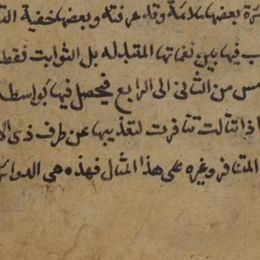 ئرة بعضها ملائمة وقد عرفته وبعضها خفية الت
ب فيها بين نغماتها المتقابلة بل الثوابت فقط
مس من الثاني الى الرابع فيحصل فيها بواسطة
اذا تثالت تنافرت لتعذيبها عن طرف ذي الا
المتنافر وغيره على هذا المثال فهذه هي الدوائر